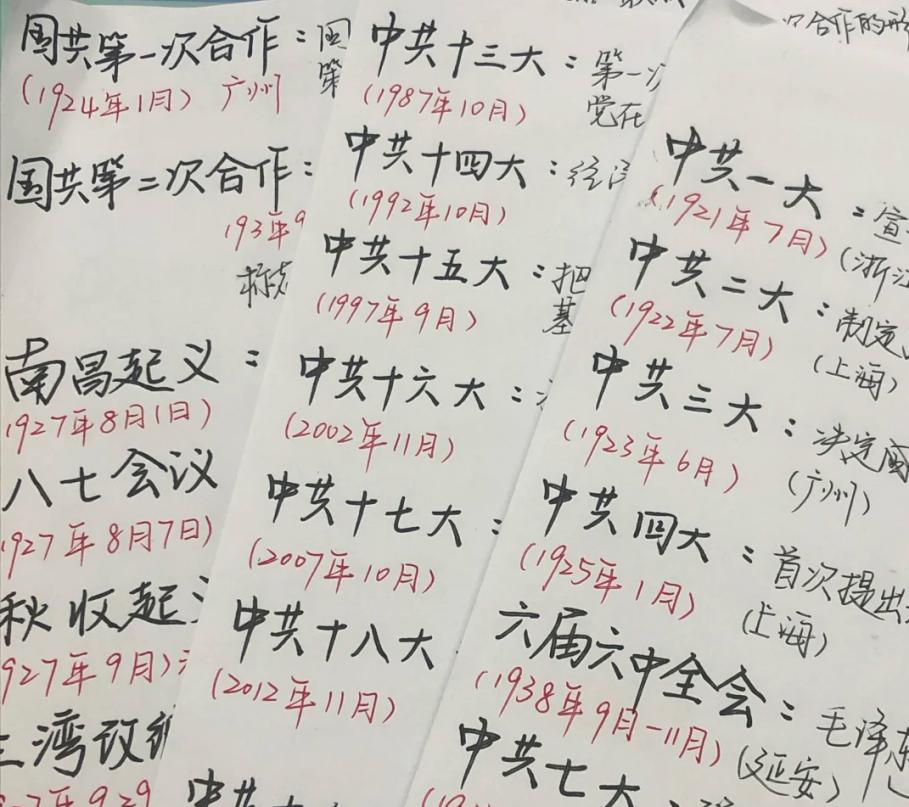 国共第一次合作：国
(1924年1月) 广州 第
国共第二次合作：
193年9
标志
南昌起义：
1927年8月1日)
八七会议
927年8月7日)
秋收起义
927年9月)
三湾改编
7年9.29
中共十三大：第一次
(1987年10月) 党在
中共十四大：经济
(1992年10月)
中共十五大：把
(1997年9月) 基
中共十六大：
(2002年11月)
中共十七大：
(2007年10月)
中共十八大
(2012年11月)
中共十
次合作的形
中共一大：宣
(1921年7月) (浙江
中共二大：制定
(1922年7月) (上海)
中共三大：决定国
(1923年6月) (广州)
中共四大：首次提出
(1925年1月) (上海)
六届六中全会：毛泽东
(1938年9月-11月) (延安)
中共七大：